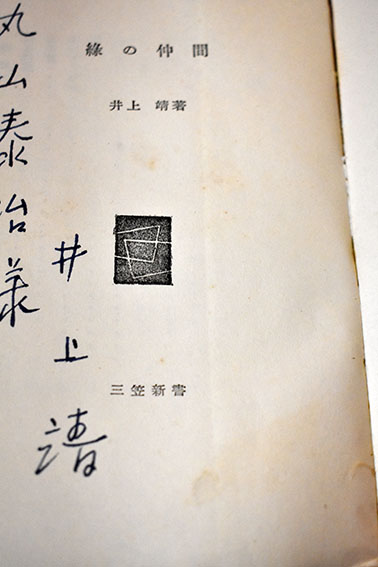 綠の仲間
井上靖著
三笠新書
丸山泰治様
井上靖